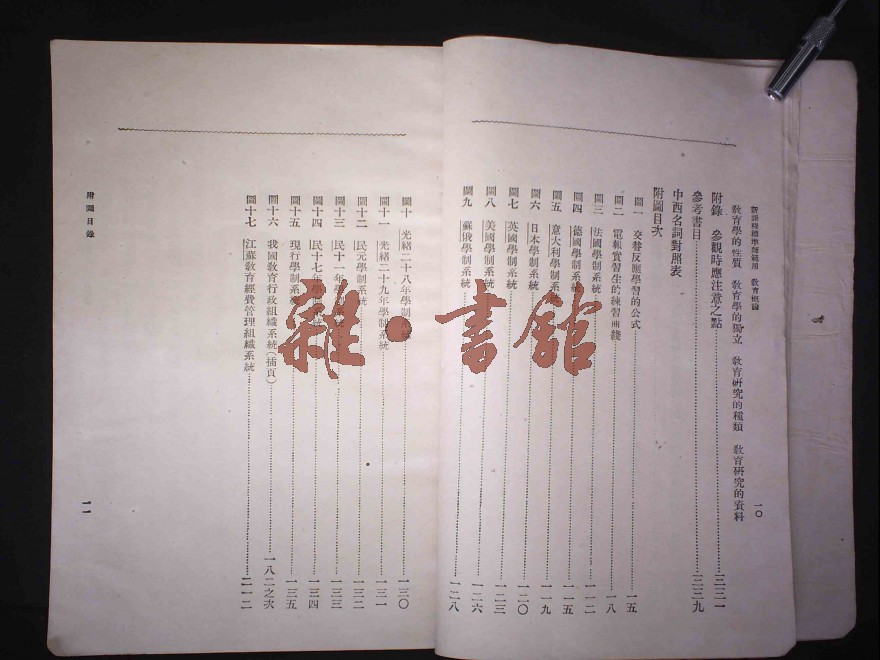 新課程標準師範用 教育概論
一〇
教育學的性質 教育學的獨立 教育研究的種類 教育研究的資料
附錄 參觀時應注意之點……三三一
參考書目……三三九
中西名詞對照表
附圖目次
圖一 交替反應學習的公式……一五
圖二 電報實習生的練習曲綫……一八
圖三 法國學制系統……一一二
圖四 德國學制系統……一一五
圖五 意大利學制系統……一一九
圖六 日本學制系統……一二〇
圖七 英國學制系統……一二三
圖八 美國學制系統……一二六
圖九 蘇俄學制系統……一二八
圖十 光緒二十八年學制系統……一三〇
圖十一 光緒二十九年學制系統……一三一
圖十二 民元學制系統……一三二
圖十三 民十一年學制系統……一三三
圖十四 民十七年學制系統……一三四
圖十五 現行學制系統……一三五
圖十六 我國教育行政組織系統(插頁)……一八二之次
圖十七 江蘇教育經費管理組織系統……二一二
附圖目錄
一一
雜·書館